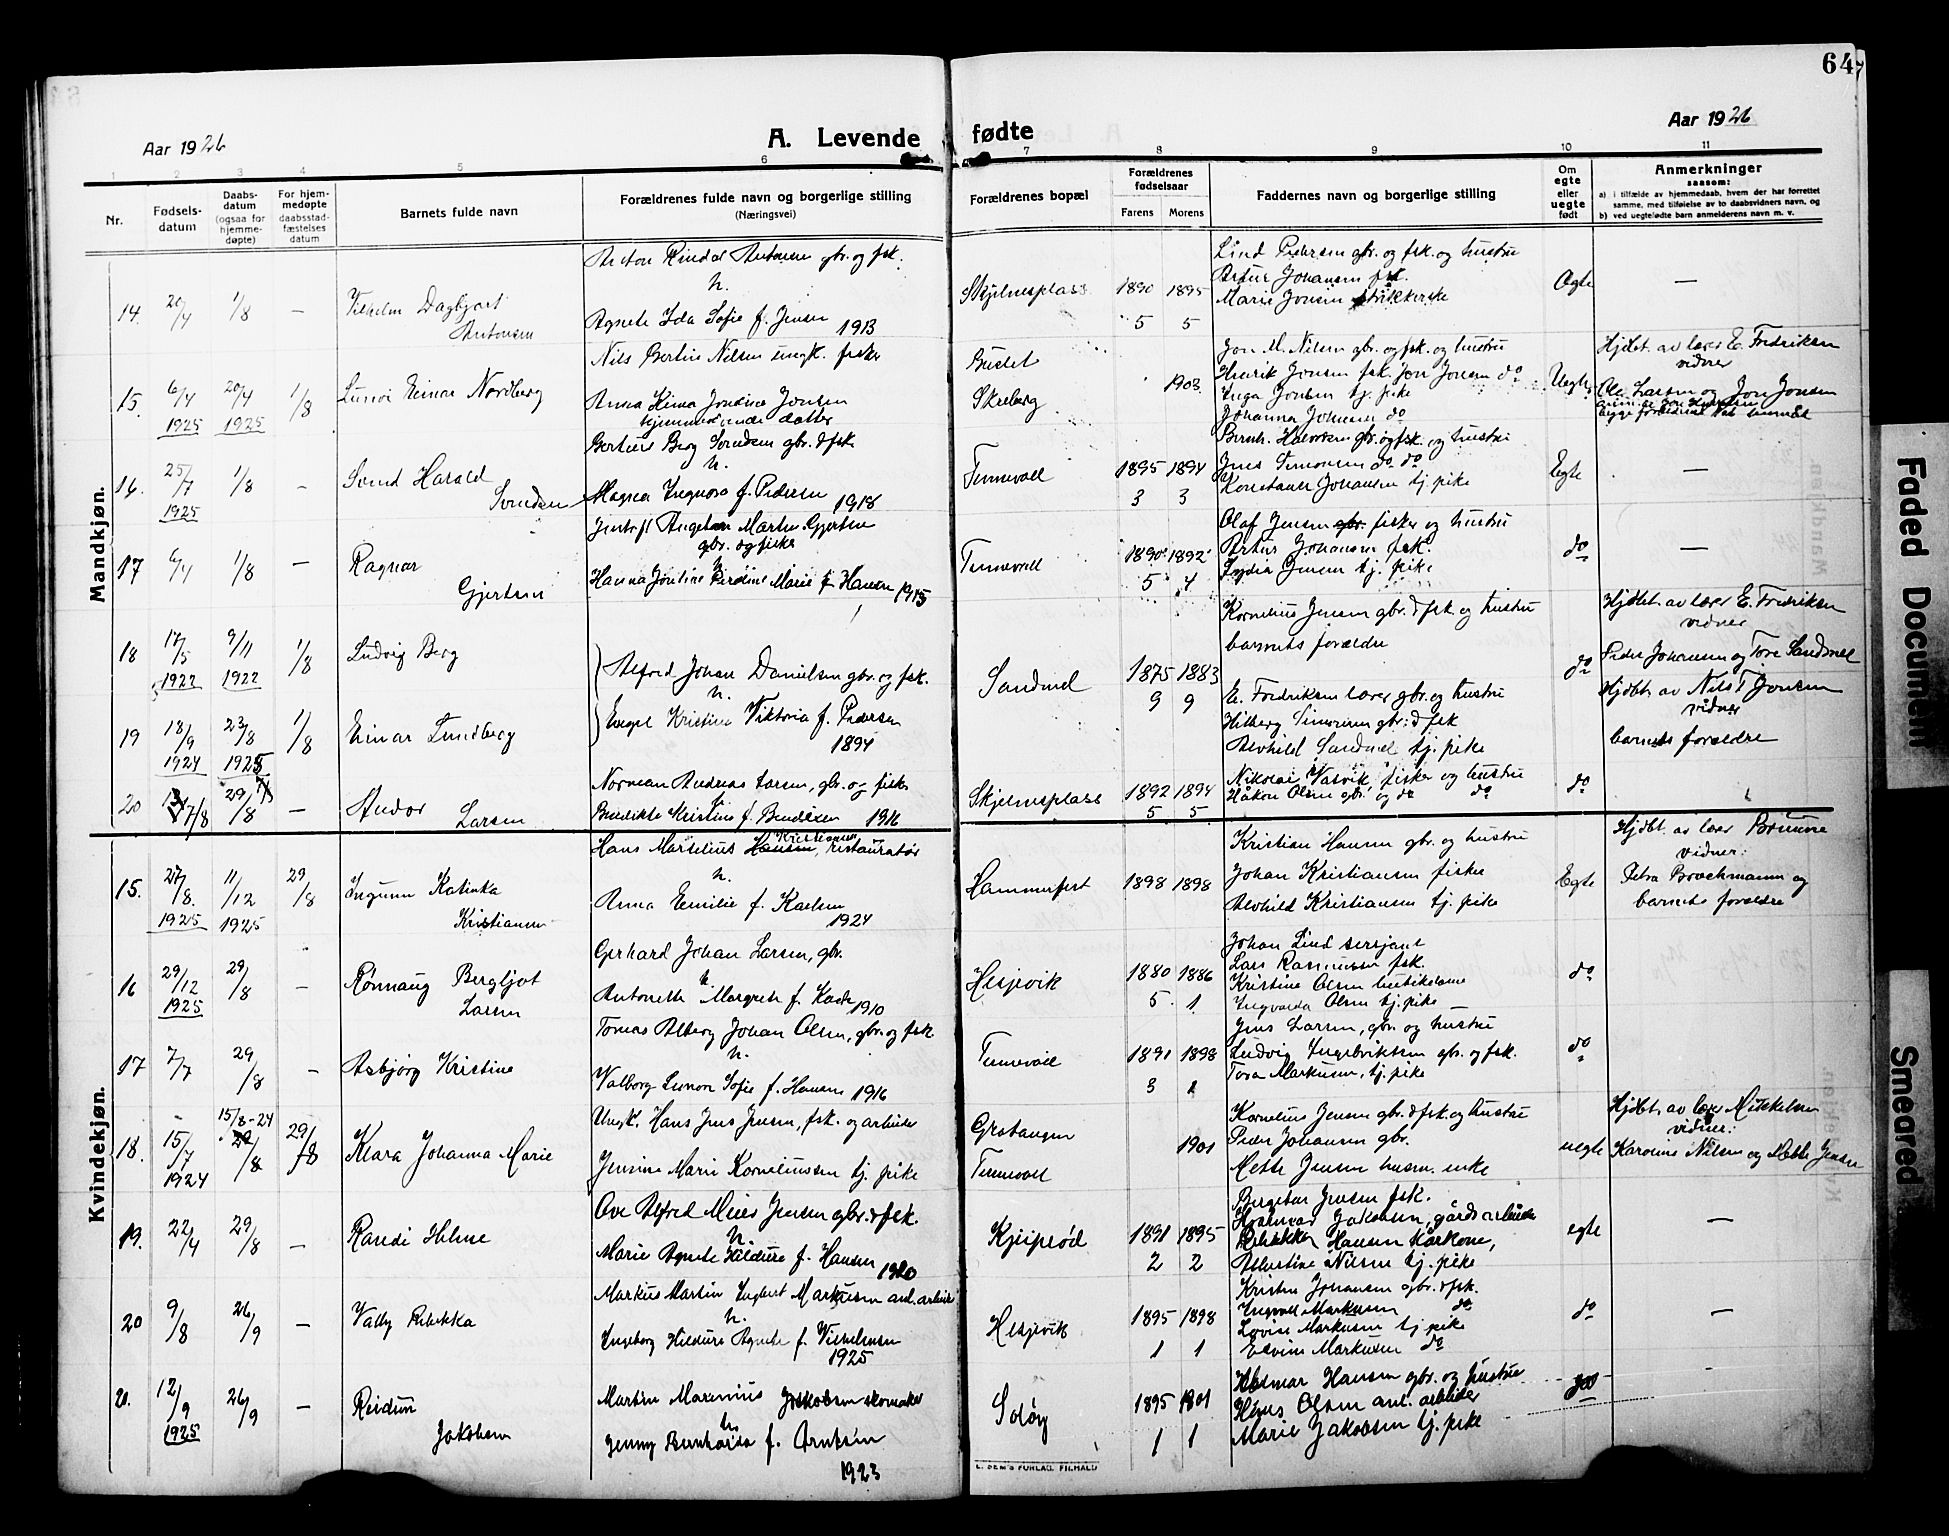 64
Aar 1926
A. Levende fødte
Aar 1926
1 2 3 4 5 6 7 8 9 10 11
Nr.
Fødsels-
datum
Daabs-
datum
(ogsaa for
hjemme-
døpte)
For hjem-
medøpte
daabsstad-
fæstelses
datum
Barnets fulde navn
Forældrenes fulde navn og borgerlige stilling
(Næringsvei)
Forældrenes bopæl
Forældrenes
fødselsaar
Farens Morens
Faddernes navn og borgerlige stilling
Om
egte
eller
uegte
født
Anmerkninger
saasom:
a) i tilfælde av hjemmedaab, hvem der har forrettet
samme, med tilføielse av to daabsvidners navn, og
b) ved uegtefødte barn anmelderens navn m. v.
Mandkjøn.
14. 1/8 —
Vilhelm Dagbjart
Antonsen
Anton Antonsen gbr. og fsk.
Agnete Ida Sofie f. Jensen
1913
Skjelnesplass 1890 1895
5 5
Lind Pedersen gbr. og fsk. og hustru
Artur Johansen fsk.
Marie Jensen
Egte —
15. 6/4 1925 20/4 1925 1/8
Einar Nordberg
Nils Bertin Nilsen ungk. fisker
Anna Jonsen
hjemmeværende datter
1903
Jon M. Nilsen gbr. og fsk. og hustru
Henrik Jonsen fsk. Jon Jonsen do
Inga Jonsen tj. pike
Johanna Johnsen do
Uegte
Hjdbt. av lærer E. Fredriksen
vidner
Ole Larsen og Jon Jonsen
16. 25/7 1925 1/8 —
Svend Harald
Svendsen
Bertius Berg Svendsen gbr. & fsk
Magna Ingvora f. Pedersen
1918
Tennevoll 1895 1894
3 3
Bernh. Halvorsen gbr. og fsk. og hustru
Jens Simonsen do do
Konstanse Johansen tj. pike
Egte —
17 6/4 1/8 —
Ragnar
Gjertsen
Angel Martin Gjertsen
gbr. og fisker
Hanna Marie f. Hansen 1915
Tennevoll 1890 1892
5 4
Olaf Jensen gbr. fisker og hustru
Artur Johansen fsk.
Lydia Jensen tj. pike
do —
18 17/5 1922 9/11 1922 1/8
Ludvig Berg
Alfred Johan Danielsen gbr. og fsk.
Sandnel 1875 1883
9 9
Kornelius Jensen gbr. & fsk. og hustru
barnets forældre
do
Hjdbt. av lærer E. Fredriksen
vidner
Peder Johansen og Tore Sandnel
19 18/9 1924 23/8 1925 1/8
Einar Tundberg
Engel Kristine Viktoria f. Pedersen
1894
E. Fredriksen lærer gbr. og hustru
Hilberg Simonsen gbr. & fsk
Alvhild Sandnel tj. pike
Hjdbt. av Nils T. Jonsen
vidner
barnets forældre
20 7/8 29/8 —
Andor
Larsen
Norman Andreas Larsen, gbr. og fisker
Benedikte Kristine f. Bendixen 1916
Skjelnesplass 1892 1894
5 5
Nikolai Vasvik fisker og hustru
Håkon Olsen gbr. og do do
do
Kvindekjøn.
15. 27/8. 1925 11/12 1925 29/8
Ingunn Katinka
Kristiansen
Hans Marselius Hansen Kristiansen, restauratør
Anna Emilie f. Karlsen
1924
Hammerfest 1898 1898
Kristian Hansen gbr. og hustru
Johan Kristiansen fisker
Alvhild Kristiansen tj. pike
Egte
Hjdbt. av lærer Bruune
vidner:
Petra Brochmann og
barnets forældre
16 29/12 1925 29/8 —
Rønnaug Bergljot
Larsen
Gerhard Johan Larsen, gbr.
Antonette Margrete f. 1910
Hesjevik 1880 1886
5 1
Johan Lind sersjant
Lars Rasmussen fsk.
Kristine Olsen
Ingvarda Olsen tj. pike —
do
17 7/7 29/8 —
Asbjørg Kristine
Tomas Alberg Johan Olsen, gbr. og fsk
Valborg Sofie f. Hansen 1916
Tennevoll 1891 1898
3
Jens Larsen, gbr. og hustru
Ludvig Ingebriktsen gbr. og fsk.
Tora Markusen, tj. pike
do
18. 15/7 1924 15/8-24 29/8
Klara Johanna Marie
Ungk. Hans Jens Jensen, fsk. og arbeider
Jensine Marie Korneliussen tj. pike
Gratangen
Tennevoll
1901
Kornelius Jensen gbr. & fsk. og hustru
Peder Johansen gbr.
Mette Jensen husm. enke
uegte
Hjdbt. av lærer Mikkelsen
vidner:
Karoline Nilsen og Mette Jensen
19. 22/4 29/8 —
Randi Helene
Ove Alfred Meier Jensen gbr. & fsk.
Marie Agnete Hildure f. Hansen
1920
Kjeiprød 1891 1895
2 2
Bergetur Jensen fsk.
Jakobsen, gårdsarbeider
Rebekka Hansen
Albertine Nilsen tj. pike
egte —
20 9/8 26/9 —
Valby Rebekka
Markus Martin Ingbert Markusen anl. arbeider
Ingeborg Hildure Agnete f. Vilhelmsen
1925
Hesjevik 1895 1898
1 1
Kristen Johansen gbr. & fsk.
Ingvald Markusen do
Lovise Markusen tj. pike
Elvine Markusen do
do —
21. 12/9 1925 26/9 —
Reidun
Jakobsen
Martin Marenius Jakobsen skomaker
Jenny Bernharda f. Arntsen
1923
Soløy 1895 1901
1 1
Hilmar Hansen gbr. og hustru
Hans Olsen anl. arbeider
Marie Jakobsen tj. pike
Faded Document
Smeared